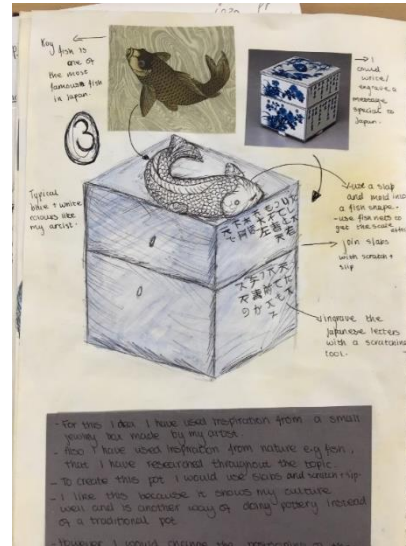 Koy fish is
one of
the most
famous fish
in Japan.
→ I
could
write/
engrave a
message
special to
Japan.
3
Typical
blue + white
colours like
my artist.
→use a slab
and mold into
a fish shape.
- use fish nets to
get the scale
join slabs
with scratch +
slip
engrave the
Japanese letters
with a scratching
tool.
- For this idea I have used inspiration from a small
jewelry box made by my artist.
- Also I have used inspiration from nature e.g fish,
that I have researched throughout the topic.
- To create this pot I would use slabs and scratch + slip.
- I like this because it shows my culture
well and is another way of doing pottery instead
of a traditional pot.
- However I would change the